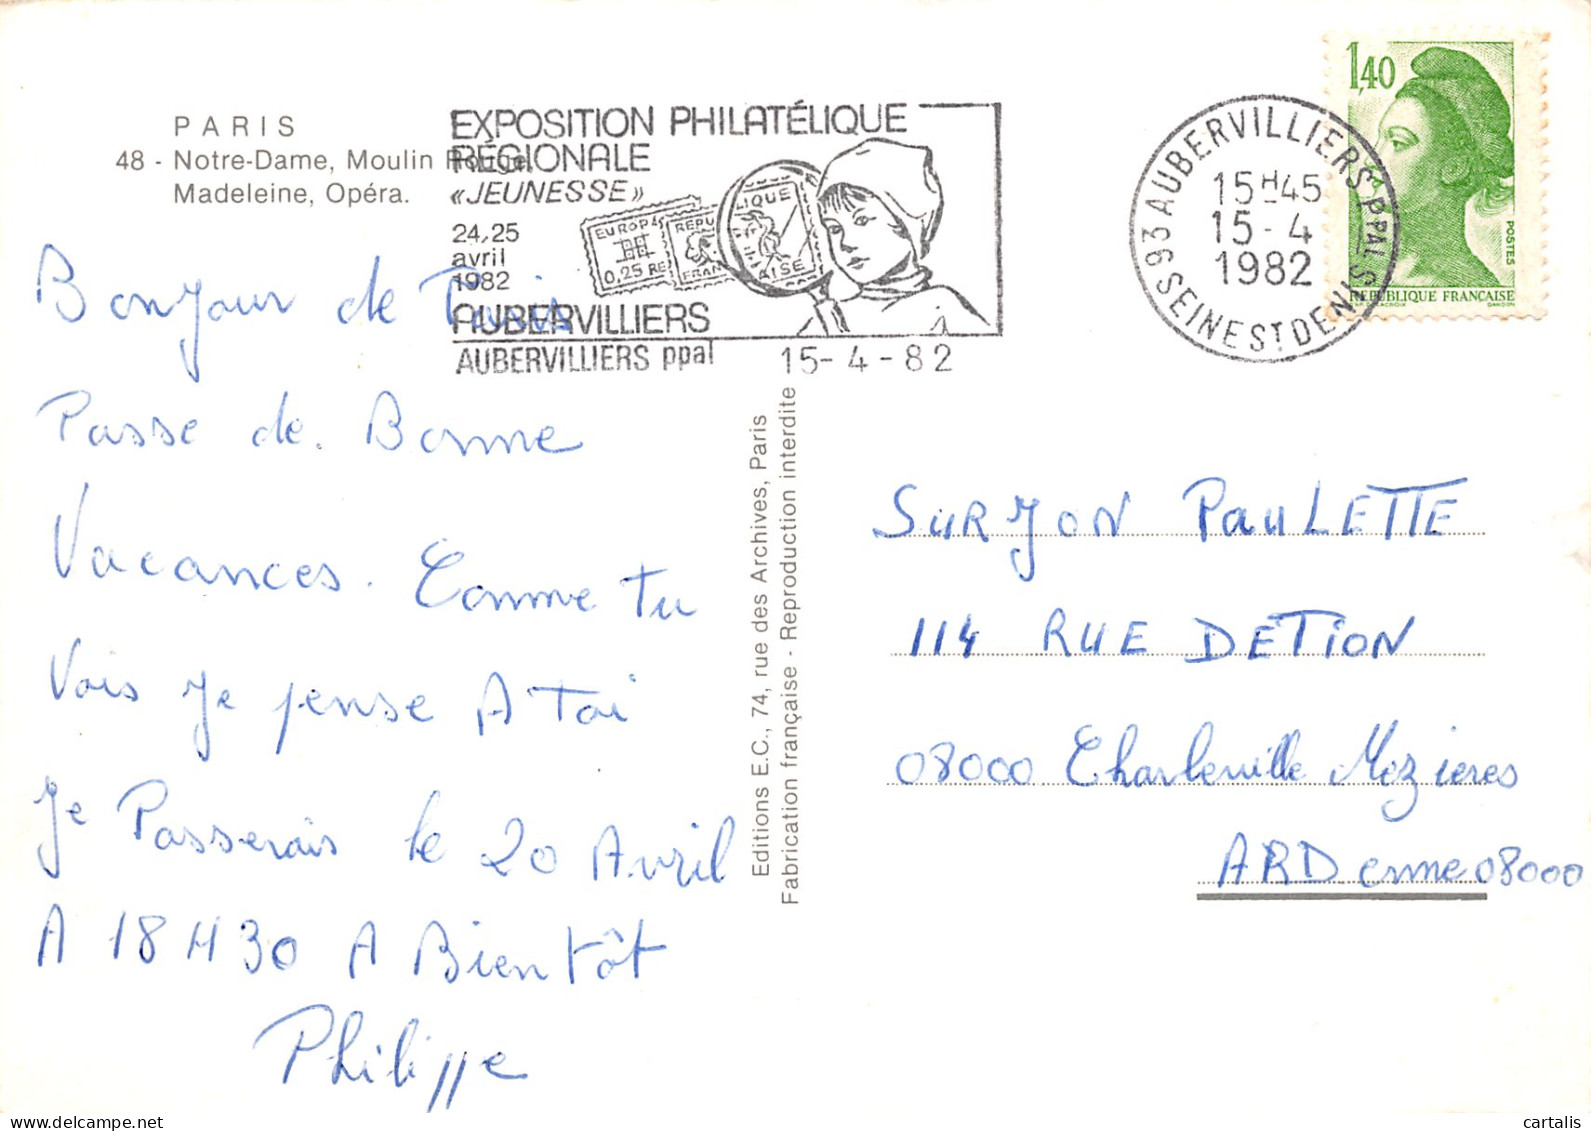 PARIS
48 - Notre-Dame, Moulin Rouge,
Madeleine, Opéra.
EXPOSITION PHILATÉLIQUE
RÉGIONALE
«JEUNESSE»
24,25
avril
1982
AUBERVILLIERS
AUBERVILLIERS ppal 15-4-82
EUROPA
0,25 RE
REPU
FRAN
LIQUE
AISE
93 AUBERVILLIERS PPAL SEINE ST DENIS
15H45
15-4
1982
1,40
POSTES
REPUBLIQUE FRANÇAISE
Bonjour de Paris
Passe de Bonne
Vacances. Comme Tu
Vois Je pense A Toi
Je Passerais le 20 Avril
A 18 H30 A Bientôt
Philippe
Editions E.C., 74, rue des Archives, Paris
Fabrication française - Reproduction interdite
SURJON PAULETTE
114 RUE DETION
08000 Charleville Mezieres
ARDenne 08000
cartalis